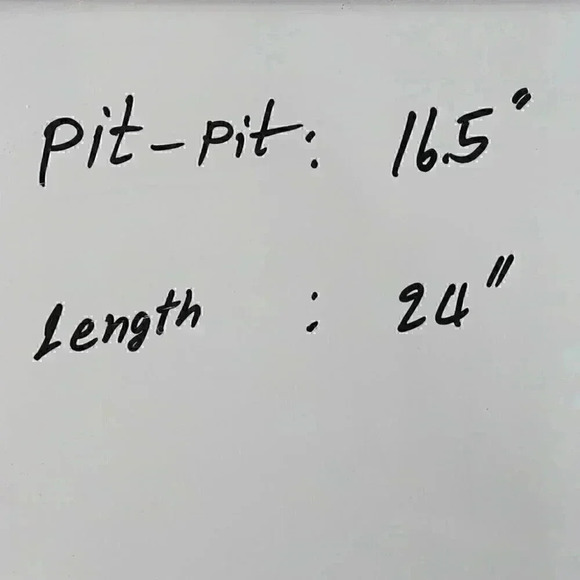 Pit-Pit: 16.5"
Length : 24"